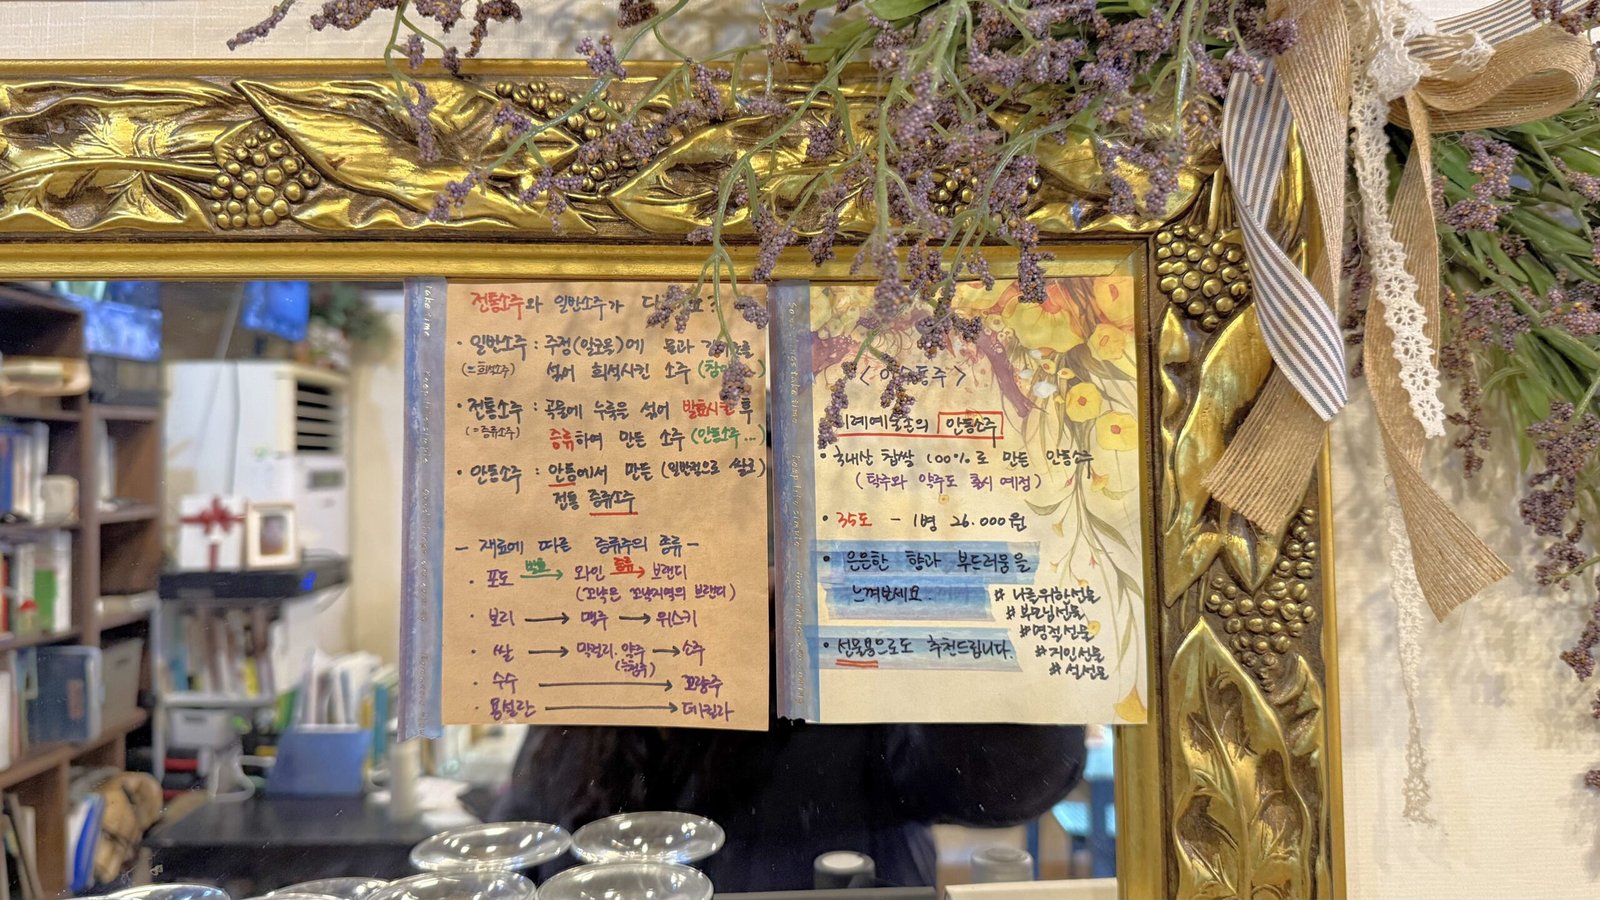 전통소주와 일반소주가
· 일반소주 : 주정(알코올)에 물과
(=희석소주) 섞어 희석시킨 소주
· 전통소주 : 곡물에 누룩을 섞어 발효시킨 후
(=증류소주) 증류하여 만든 소주 (안동소주...)
· 안동소주 : 안동에서 만든 (일반적으로 쌀로)
전통 증류소주
- 재료에 따른 증류주의 종류 -
· 포도 발효→ 와인 증류→ 브랜디
(꼬냑은 꼬냑지역의 브랜디)
· 보리 → 맥주 → 위스키
· 쌀 → 막걸리, 약주 → 소주
· 수수 → 고량주
· 용설란 → 데킬라
안동소주
· 국내산 찹쌀 100%로 만든 안동소주
(탁주와 약주도 출시 예정)
· 35도 - 1병 26.000원
· 은은한 향과 부드러움을
느껴보세요.
# 나를위한선물
# 부모님선물
# 명절선물
# 지인선물
# 설선물
· 선물용으로도 추천드립니다.